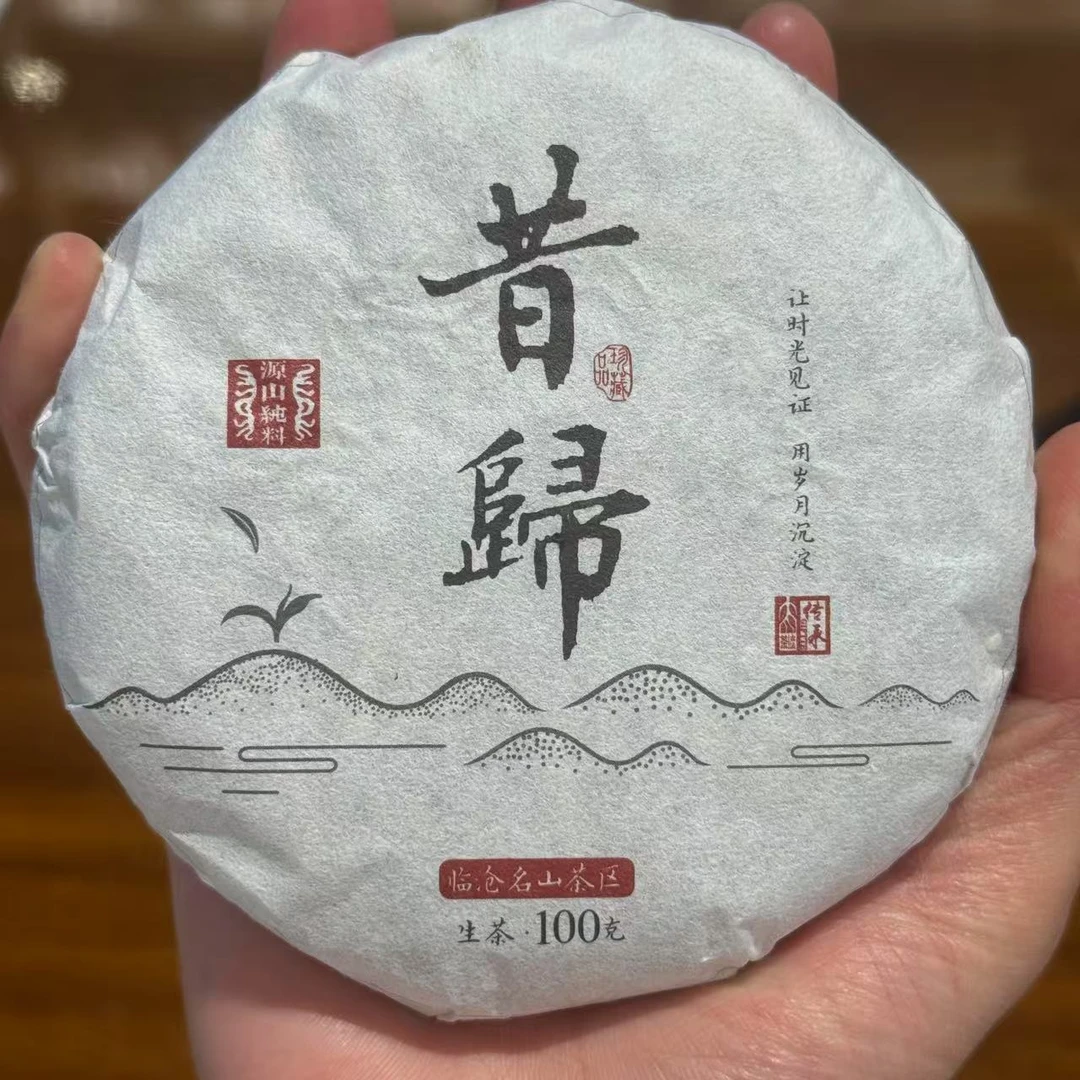 昔歸
珍藏品
让时光见证 用岁月沉淀
源山純料
传承
临沧名山茶区
生茶·100克